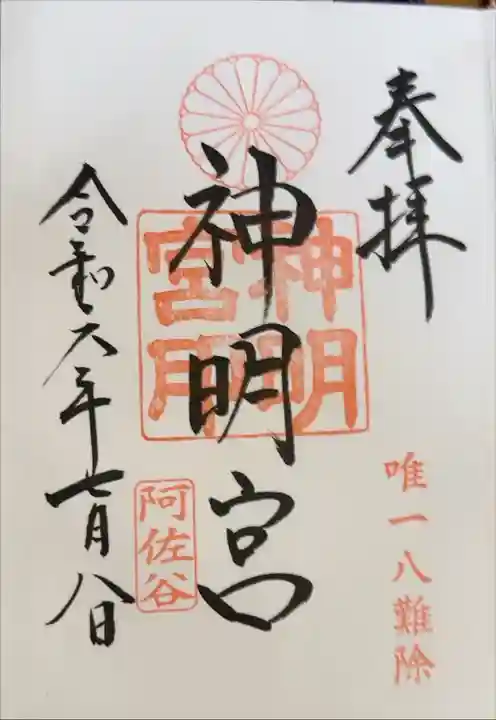 奉拝
唯一八難除
神明宮
神明宮印
阿佐谷
令和六年七月八日